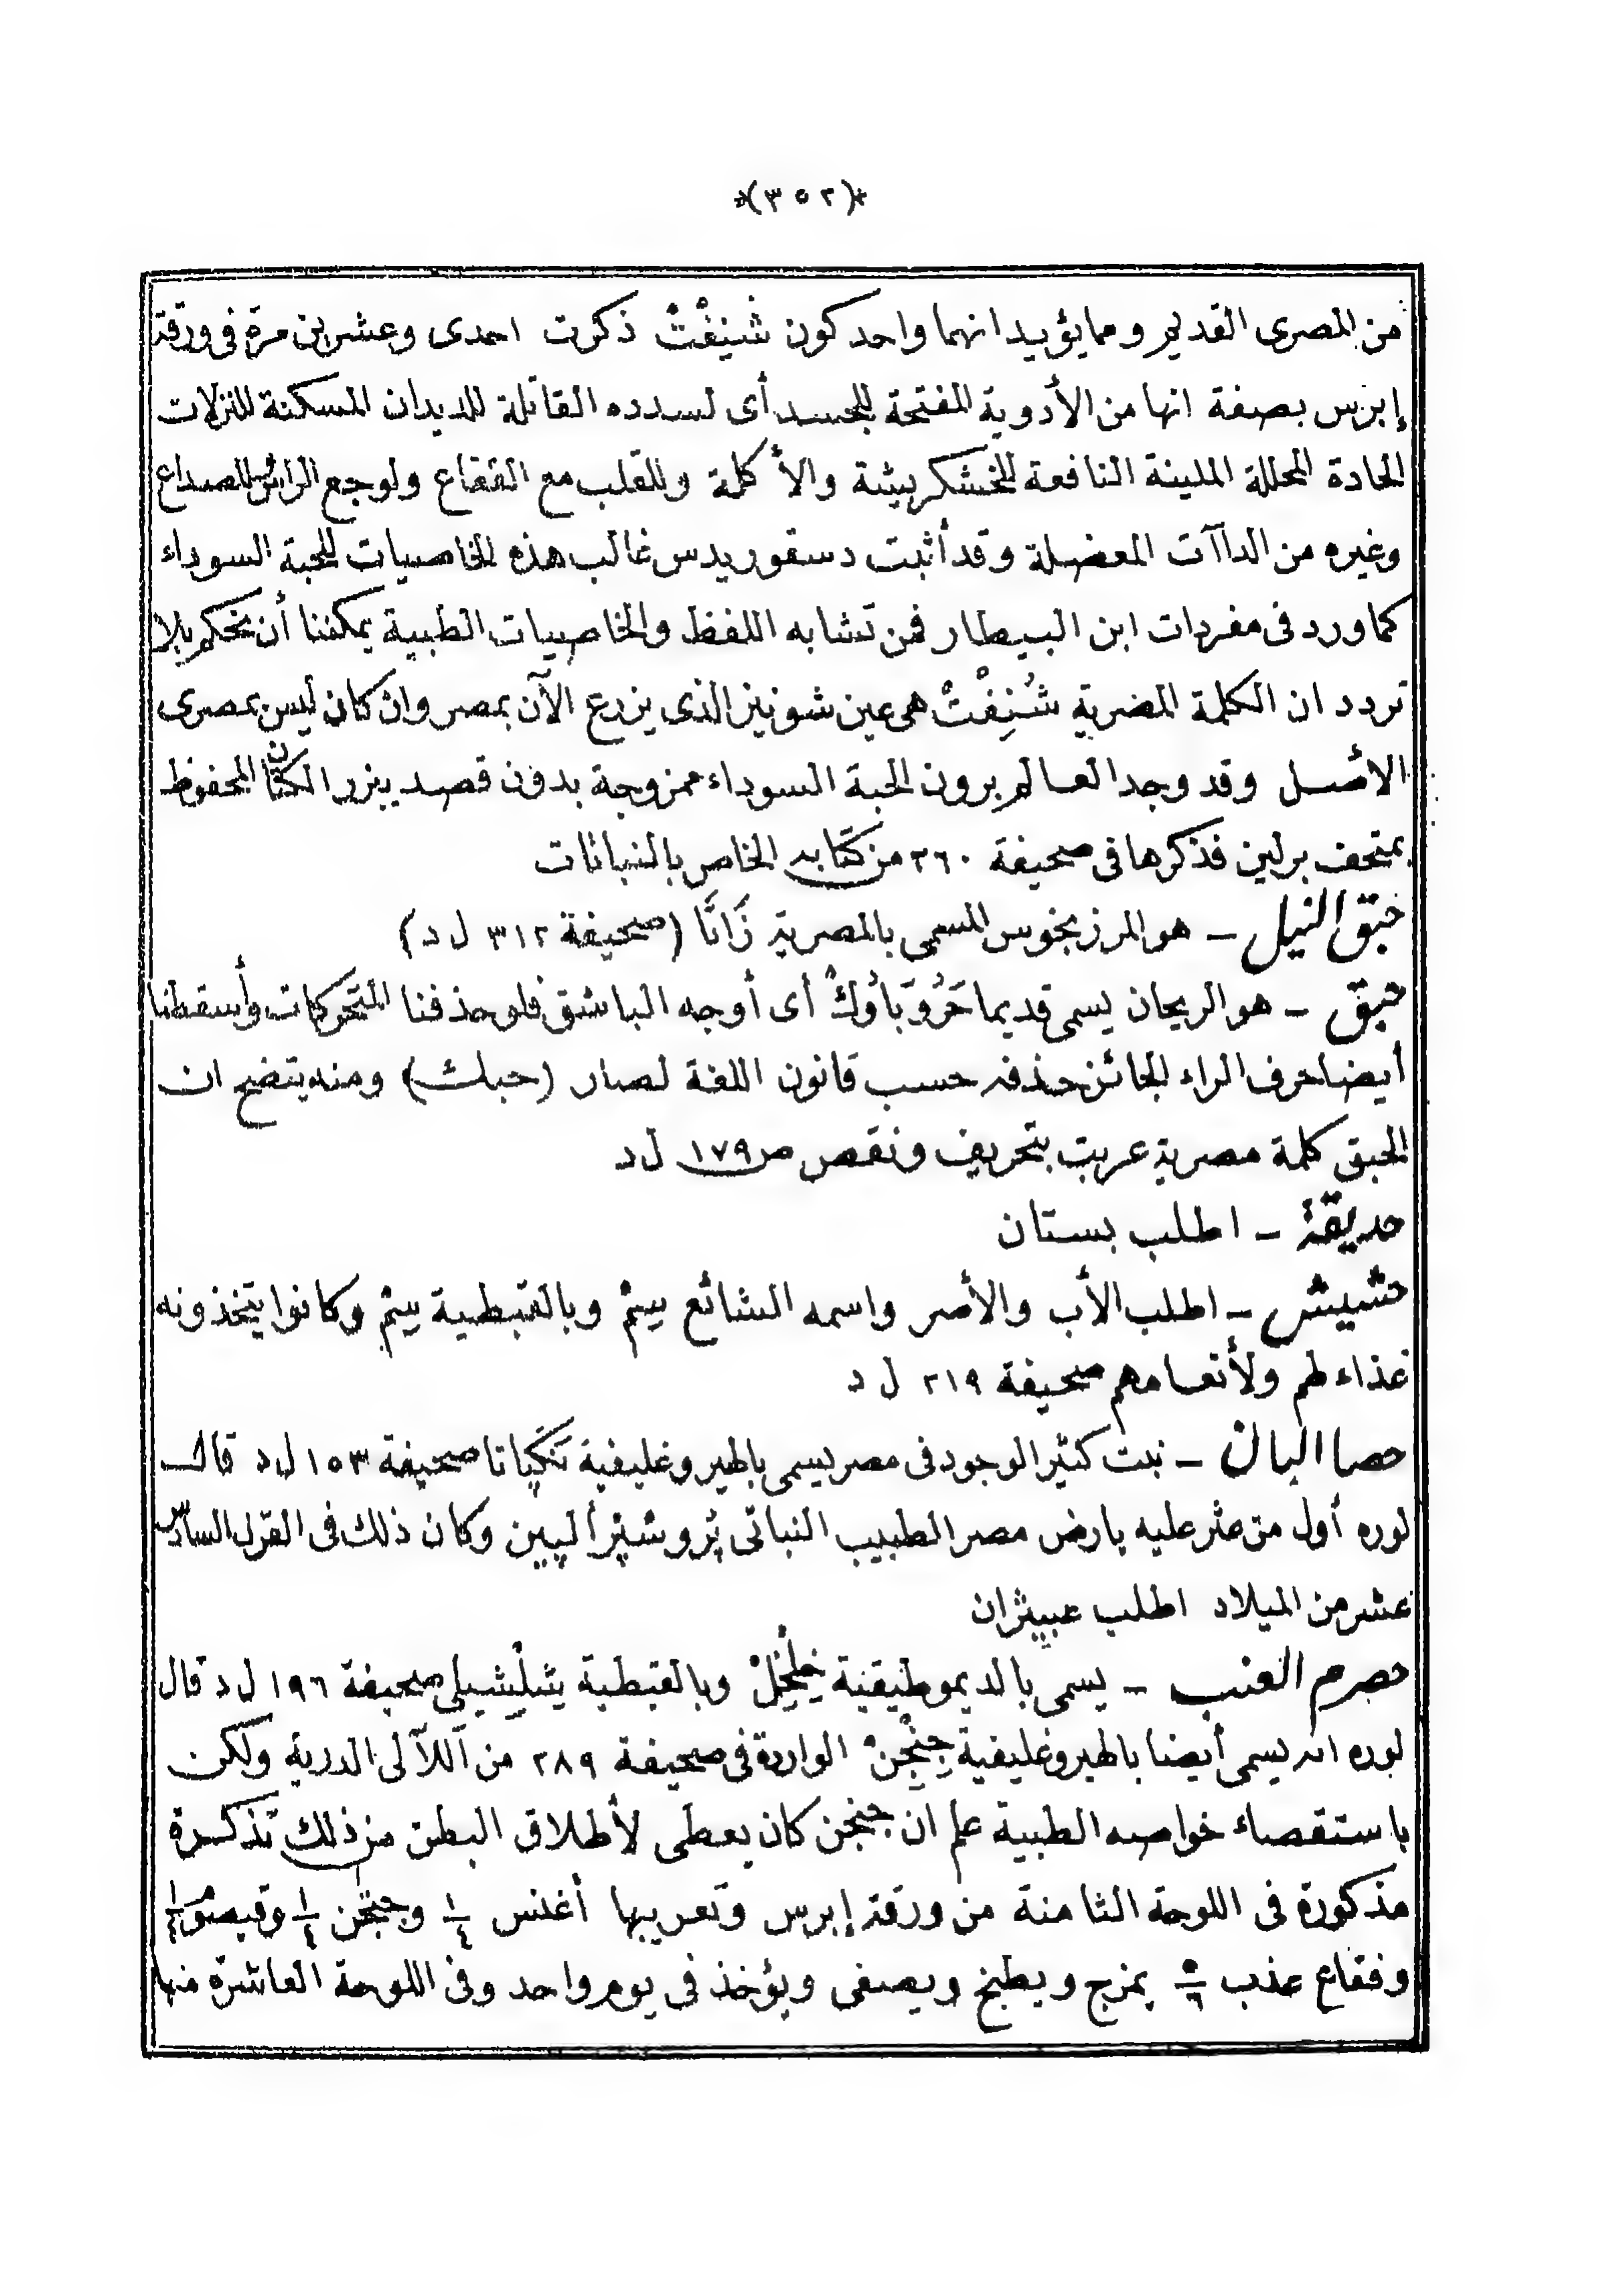 *(٣٥٢)*
من المصرى القديم ومما يؤيد انهما واحد كون شُنِيفْتْ ذكرت احدى وعشرين مرة فى ورقة
إبرس بصفة انها من الأدوية المفتحة للجسد أى لسدده القاتلة للديدان المسكنة للنزلات
الحادة المحللة الملينة النافعة للخشكريشة والأكلة وللقلب مع الفقاع ولوجع الرأس للصداع
وغيره من الداآت المعضلة وقد أثبت دسقوريدس غالب هذه الخاصيات للحبة السوداء
كما ورد فى مفردات ابن البيطار فمن تشابه اللفظ والخاصيات الطبية يمكننا أن نحكم بلا
تردد ان الكلمة المصرية شُنِفْتْ هى عين شونيز الذى يزرع الآن بمصر وان كان ليس بمصرى
الأصل وقد وجد العالم برون الحبة السوداء ممزوجة بدون قصد ببزر الكتان المحفوظ
بمتحف برلين فذكرها فى صحيفة ٢٦٠ من كتابه الخاص بالنباتات
حبق النيل - هو المرزنجوس المسمى بالمصرية زَانَّا (صحيفة ٣١٢ ل د)
حبق - هو الريحان يسمى قديما حَرُوَبَاوُكْ أى أوجه الباشق فلو حذفنا المتحركات وأسقطنا
أيضا حرف الراء الجائز حذفه حسب قانون اللغة لصار (حبك) ومنه يتضح ان
الحبق كلمة مصرية عربت بتحريف ونقص ص ١٧٩ ل د
حديقة - اطلب بستان
حشيش - اطلب الأب والأصر واسمه الشائع سِمْ وبالقبطية سِمْ وكانوا يتخذونه
غذاء لهم ولأنعامهم صحيفة ٢١٩ ل د
حصا البان - نبت كثير الوجود فى مصر يسمى بالهيروغليفية نَكَپاتا صحيفة ١٥٣ ل د قال
لوره أول من عثر عليه بارض مصر الطبيب النباتى پُرُوشپُر ألپين وكان ذلك فى القرن السادس
عشر من الميلاد اطلب عبيثران
حصرم العنب - يسمى بالديموطيقية خِلْخِلْ وبالقبطية شِلْشيلى صحيفة ١٩٦ ل د قال
لوره انه يسمى أيضا بالهيروغليفية جِنْجِنْ الواردة فى صحيفة ٢٨٩ من اللآلى الدرية ولكن
باستقصاء خواصه الطبية علم ان جنجن كان يعطى لأطلاق البطن من ذلك تذكرة
مذكورة فى اللوحة الثامنة من ورقة إبرس وتعريبها أغنس ١/٤ وجنجن ١/٤ وقيصوم ١/٤
وفقاع عذب ٥/٦ يمزج ويطبخ ويصفى ويؤخذ فى يوم واحد وفى اللوحة العاشرة منها